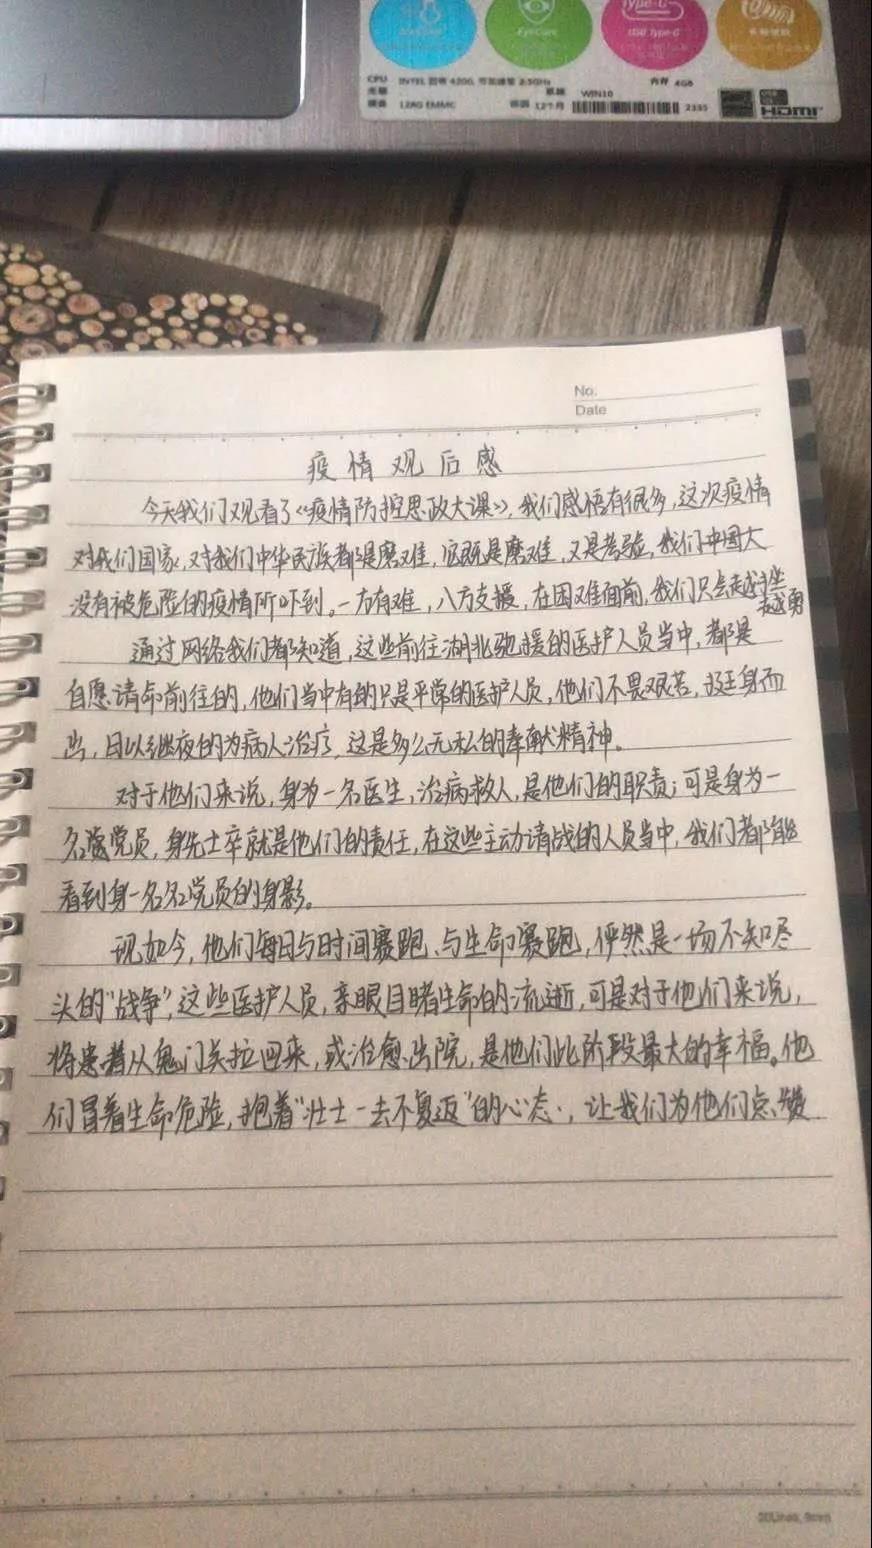 Type-C
EyeCare
USB Type-C
CPU INTEL 4200, 2.5GHz 内存 4GB
WIN10
128G EMMC 12个月 2335
HDMI
No.
Date
疫情观后感
今天我们观看了《疫情防控思政大课》,我们感悟有很多,这次疫情
对我们国家,对我们中华民族都是磨难,它既是磨难,又是考验,我们中国人
没有被危险的疫情所吓到。一方有难,八方支援,在困难面前,我们只会越挫
越勇
通过网络我们都知道,这些前往湖北驰援的医护人员当中,都是
自愿请命前往的,他们当中有的只是平常的医护人员,他们不畏艰苦,挺身而
出,日以继夜的为病人治疗,这是多么无私的奉献精神。
对于他们来说,身为一名医生,治病救人,是他们的职责;可是身为一
名党员,身先士卒就是他们的责任,在这些主动请战的人员当中,我们都能
看到身一名名党员的身影。
现如今,他们每日与时间赛跑、与生命赛跑,俨然是一场不知尽
头的“战争”,这些医护人员,亲眼目睹生命的流逝,可是对于他们来说,
将患者从鬼门关拉回来,或治愈出院,是他们此阶段最大的幸福。他
们冒着生命危险,抱着“壮士一去不复返”的心态,让我们为他们点赞